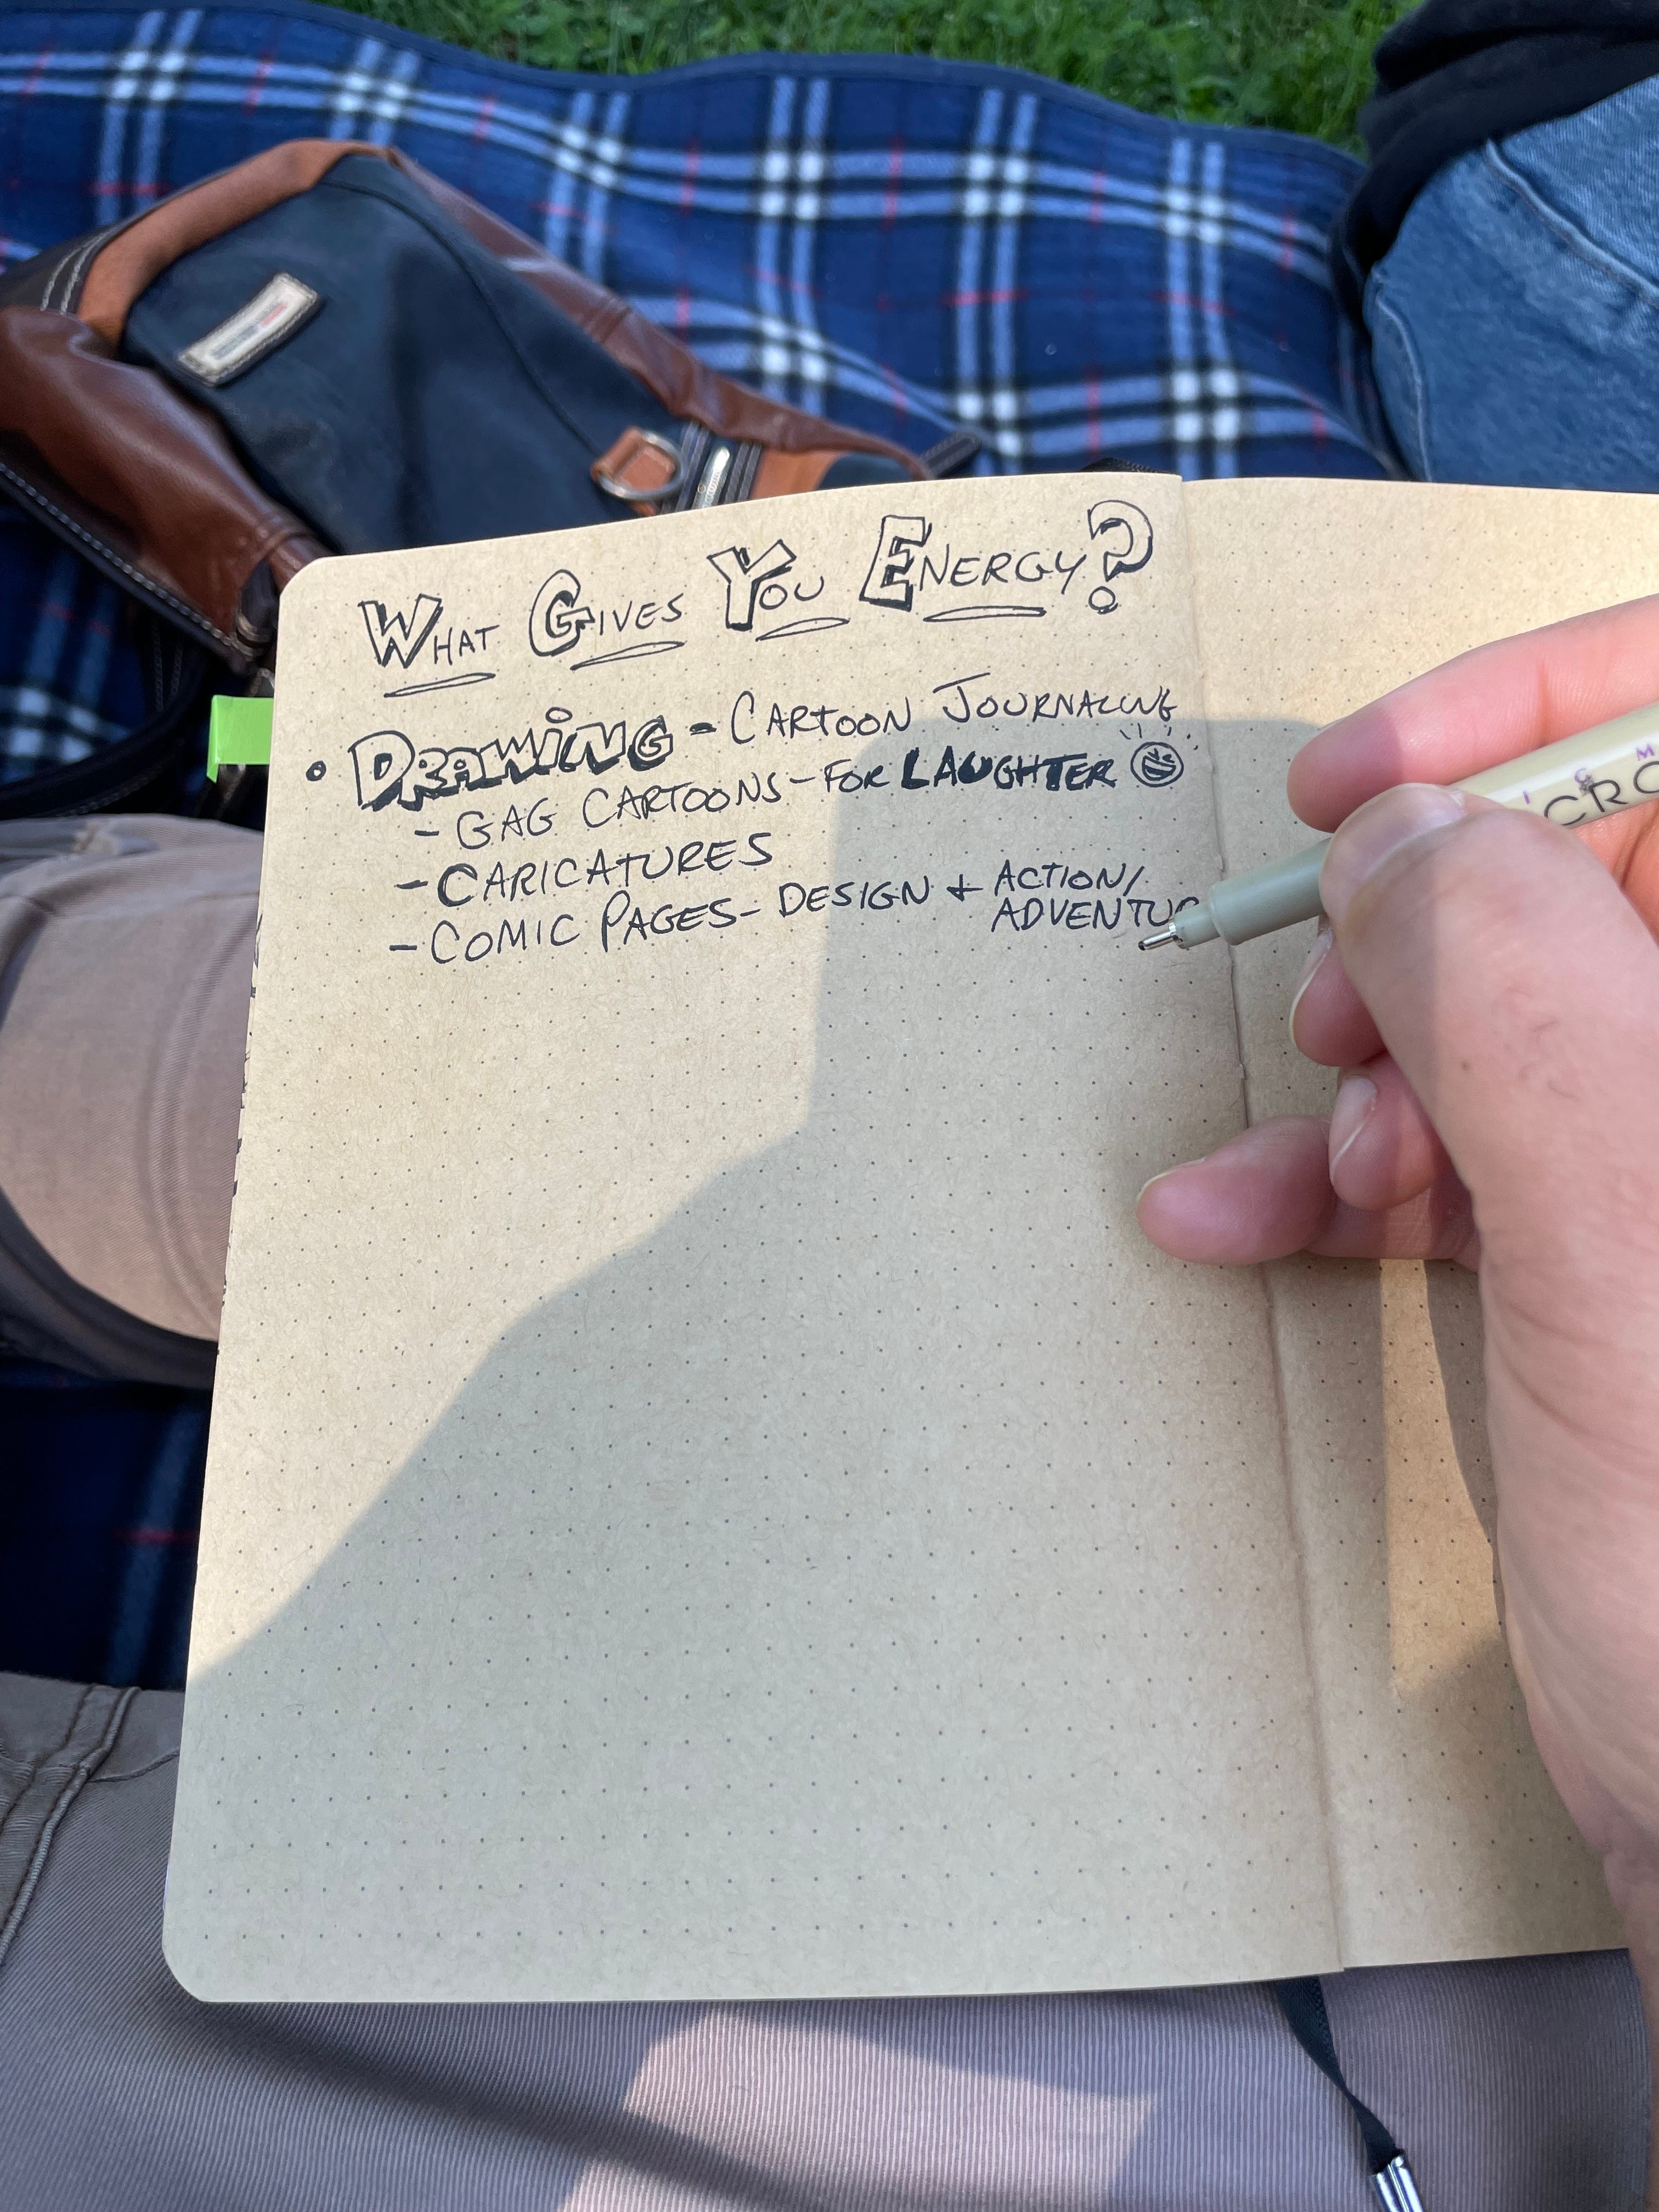 WHAT GIVES YOU ENERGY?
• DRAWING - CARTOON JOURNALING
- GAG CARTOONS - FOR LAUGHTER
- CARICATURES
- COMIC PAGES - DESIGN + ACTION/
ADVENTUR
MICRO